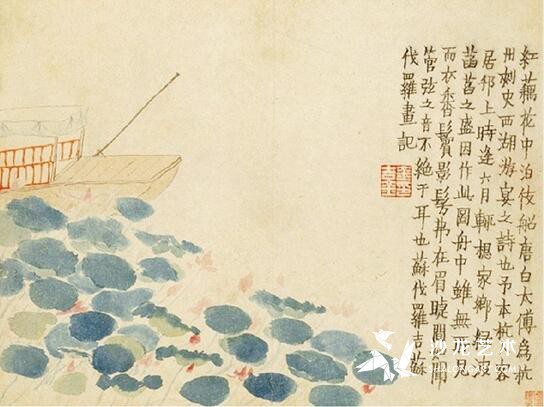 紅藕花中泊伎船唐白太傅為杭
州刺史西湖游宴之詩也予本杭客
居邗上時逢六月輒想家鄉綠波
菡萏之盛因作此圖舟中雖無
而衣香鬢影髣髴在眉睫間聞
管弦之音不絕于耳也蘇伐羅吉蘇
伐羅畫記
沙龙艺术